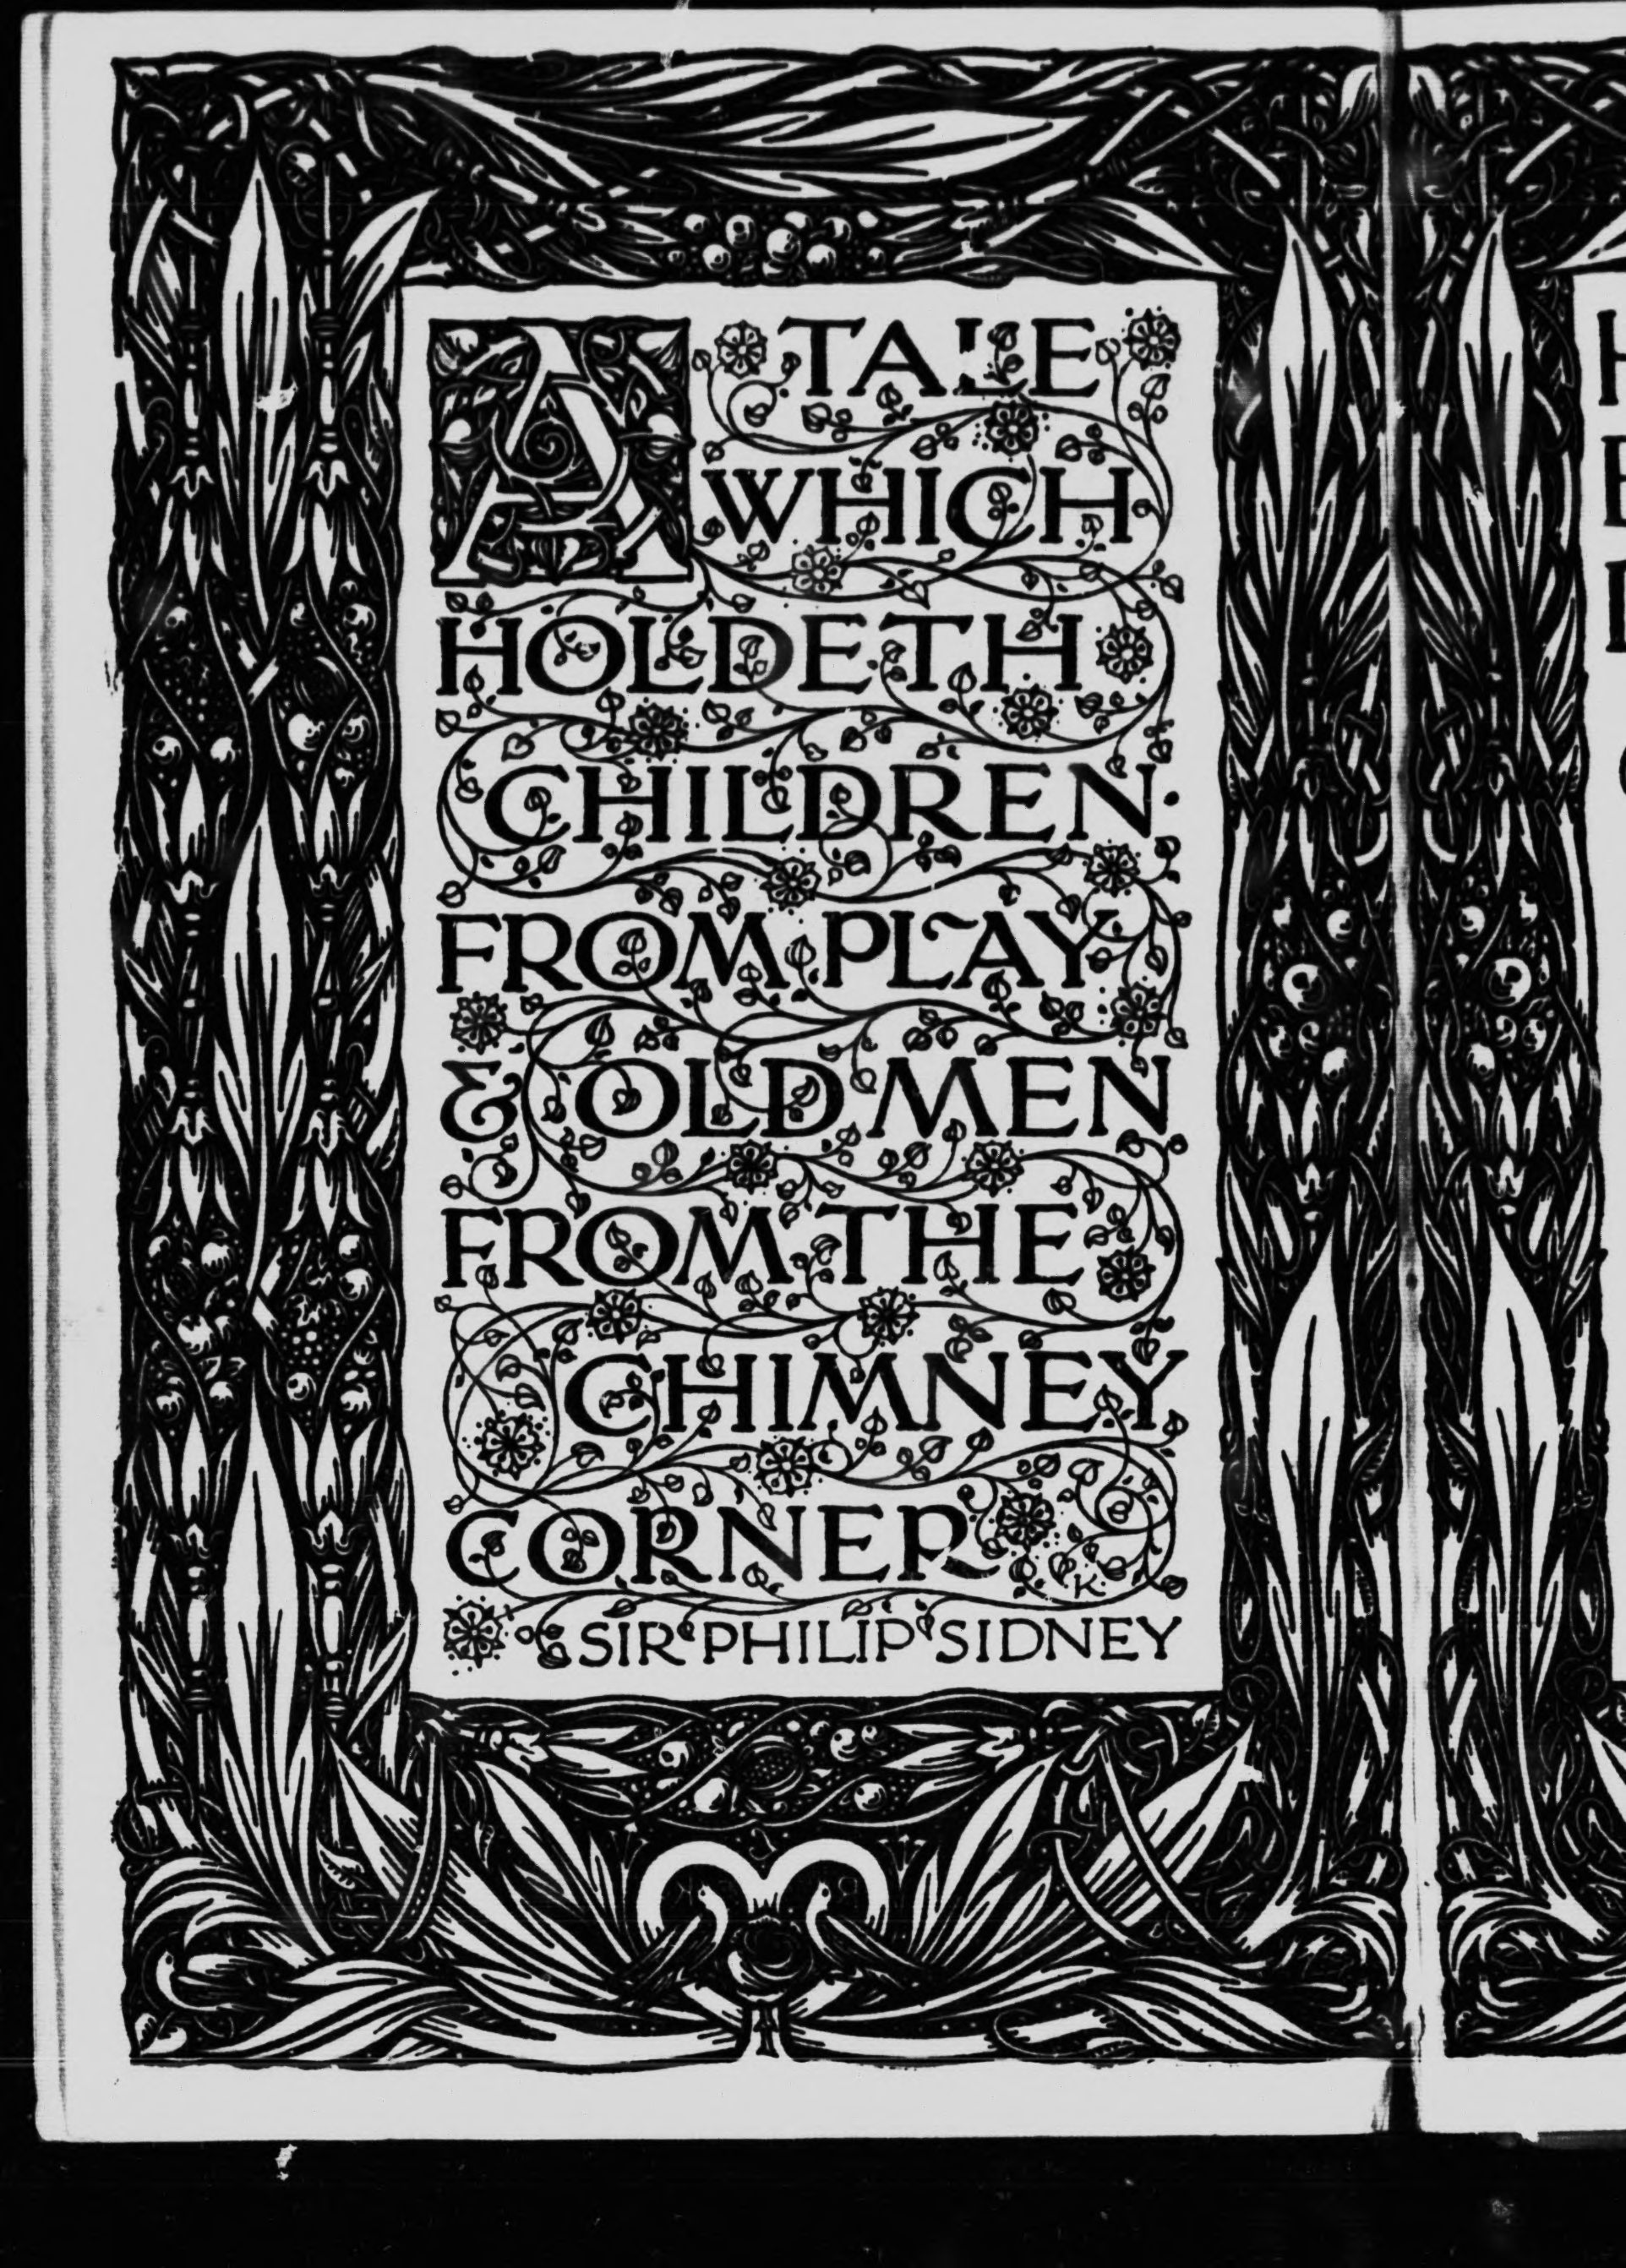 A TALE
WHICH
HOLDETH
CHILDREN
FROM PLAY
& OLD MEN
FROM THE
CHIMNEY
CORNER
K.
SIR PHILIP SIDNEY